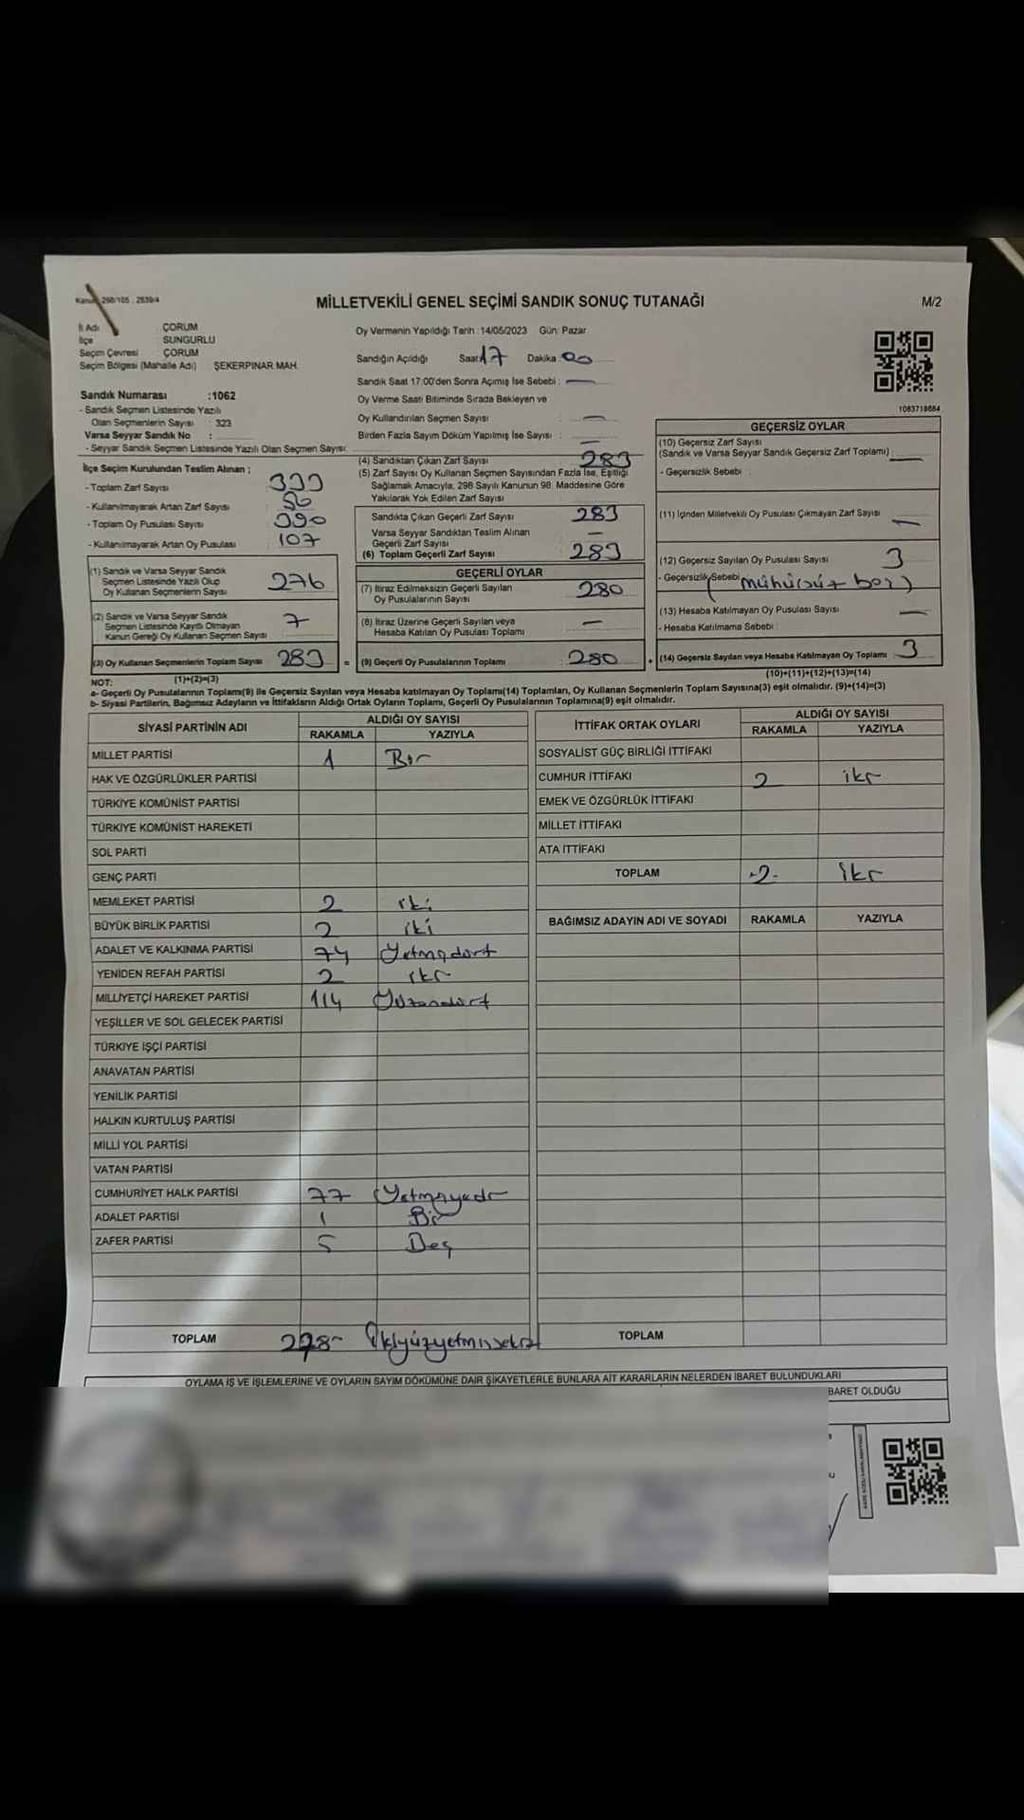 Kanun 298/105 , 2839/4
MİLLETVEKİLİ GENEL SEÇİMİ SANDIK SONUÇ TUTANAĞI
M/2
İl Adı : ÇORUM
İlçe SUNGURLU
Seçim Çevresi : ÇORUM
Seçim Bölgesi (Mahalle Adı) ŞEKERPINAR MAH.
Sandık Numarası :1062
- Sandık Seçmen Listesinde Yazılı
Olan Seçmenlerin Sayısı : 323
Varsa Seyyar Sandık No :
- Seyyar Sandık Seçmen Listesinde Yazılı Olan Seçmen Sayısı:
Oy Vermenin Yapıldığı Tarih :14/05/2023 Gün: Pazar
Sandığın Açıldığı Saat 17 Dakika 00
Sandık Saat 17:00'den Sonra Açımış İse Sebebi : —
Oy Verme Saati Bitiminde Sırada Bekleyen ve
Oy Kullandırılan Seçmen Sayısı —
Birden Fazla Sayım Döküm Yapılmış İse Sayısı : —
1083718684
İlçe Seçim Kurulundan Teslim Alınan ;
- Toplam Zarf Sayısı
- Kullanılmayarak Artan Zarf Sayısı
- Toplam Oy Pusulası Sayısı 390
- Kullanılmayarak Artan Oy Pusulası 107
(1) Sandık ve Varsa Seyyar Sandık
Seçmen Listesinde Yazılı Olup
Oy Kullanan Seçmenlerin Sayısı 276
(2) Sandık ve Varsa Seyyar Sandık
Seçmen Listesinde Kayıtlı Olmayan
Kanun Gereği Oy Kullanan Seçmen Sayısı 7
(3) Oy Kullanan Seçmenlerin Toplam Sayısı 283 =
(1)+(2)=(3)
(4) Sandıktan Çıkan Zarf Sayısı 283
(5) Zarf Sayısı Oy Kullanan Seçmen Sayısından Fazla İse, Eşitliği
Sağlamak Amacıyla, 298 Sayılı Kanunun 98. Maddesine Göre
Yakılarak Yok Edilen Zarf Sayısı
Sandıkta Çıkan Geçerli Zarf Sayısı 283
Varsa Seyyar Sandıktan Teslim Alınan
Geçerli Zarf Sayısı —
(6) Toplam Geçerli Zarf Sayısı 283
GEÇERLİ OYLAR
(7) İtiraz Edilmeksizin Geçerli Sayılan
Oy Pusulalarının Sayısı 280
(8) İtiraz Üzerine Geçerli Sayılan veya
Hesaba Katılan Oy Pusulası Toplamı —
(9) Geçerli Oy Pusulalarının Toplamı 280 +
GEÇERSİZ OYLAR
(10) Geçersiz Zarf Sayısı
(Sandık ve Varsa Seyyar Sandık Geçersiz Zarf Toplamı) —
- Geçersizlik Sebebi :
(11) İçinden Milletvekili Oy Pusulası Çıkmayan Zarf Sayısı —
(12) Geçersiz Sayılan Oy Pusulası Sayısı 3
- Geçersizlik Sebebi (mühürsüz boş)
(13) Hesaba Katılmayan Oy Pusulası Sayısı —
- Hesaba Katılmama Sebebi :
(14) Geçersiz Sayılan veya Hesaba Katılmayan Oy Toplamı 3
(10)+(11)+(12)+(13)=(14)
NOT:
a- Geçerli Oy Pusulalarının Toplamı(9) ile Geçersiz Sayılan veya Hesaba katılmayan Oy Toplamı(14) Toplamları, Oy Kullanan Seçmenlerin Toplam Sayısına(3) eşit olmalıdır. (9)+(14)=(3)
b- Siyasi Partilerin, Bağımsız Adayların ve İttifakların Aldığı Ortak Oyların Toplamı, Geçerli Oy Pusulalarının Toplamına(9) eşit olmalıdır.
SİYASİ PARTİNİN ADI ALDIĞI OY SAYISI
RAKAMLA YAZIYLA
MİLLET PARTİSİ 1 Bir
HAK VE ÖZGÜRLÜKLER PARTİSİ
TÜRKİYE KOMÜNİST PARTİSİ
TÜRKİYE KOMÜNİST HAREKETİ
SOL PARTİ
GENÇ PARTİ
MEMLEKET PARTİSİ 2 iki
BÜYÜK BİRLİK PARTİSİ 2 iki
ADALET VE KALKINMA PARTİSİ 74 Yetmişdört
YENİDEN REFAH PARTİSİ 2 iki
MİLLİYETÇİ HAREKET PARTİSİ 114 Yüzondört
YEŞİLLER VE SOL GELECEK PARTİSİ
TÜRKİYE İŞÇİ PARTİSİ
ANAVATAN PARTİSİ
YENİLİK PARTİSİ
HALKIN KURTULUŞ PARTİSİ
MİLLİ YOL PARTİSİ
VATAN PARTİSİ
CUMHURİYET HALK PARTİSİ 77 Yetmişyedi
ADALET PARTİSİ 1 Bir
ZAFER PARTİSİ 5 Beş
TOPLAM 278- ikiyüzyetmişsekiz
İTTİFAK ORTAK OYLARI ALDIĞI OY SAYISI
RAKAMLA YAZIYLA
SOSYALİST GÜÇ BİRLİĞİ İTTİFAKI
CUMHUR İTTİFAKI 2 iki
EMEK VE ÖZGÜRLÜK İTTİFAKI
MİLLET İTTİFAKI
ATA İTTİFAKI
TOPLAM -2- iki
BAĞIMSIZ ADAYIN ADI VE SOYADI RAKAMLA YAZIYLA
TOPLAM
OYLAMA İŞ VE İŞLEMLERİNE VE OYLARIN SAYIM DÖKÜMÜNE DAİR ŞİKAYETLERLE BUNLARA AİT KARARLARIN NELERDEN İBARET BULUNDUKLARI
BARET OLDUĞU